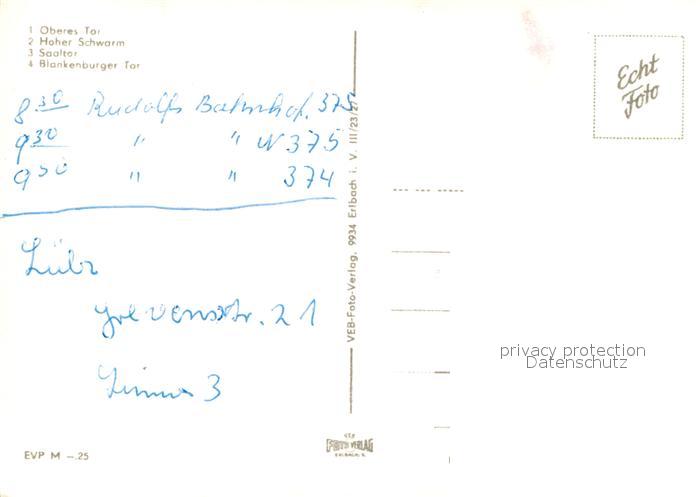 1 Oberes Tor
2 Hoher Schwarm
3 Saaltor
4 Blankenburger Tor
8 30 Rudolfs Bahnhof. 375
9 30 " " N 375
9 50 " " 374
Lübz
Grevenstr. 21
Zimmer 3
EVP M –.25
VEB-Foto-Verlag, 9934 Erlbach i. V. III/23/27
FOTO VERLAG
ERLBACH
Echt
Foto
privacy protection
Datenschutz